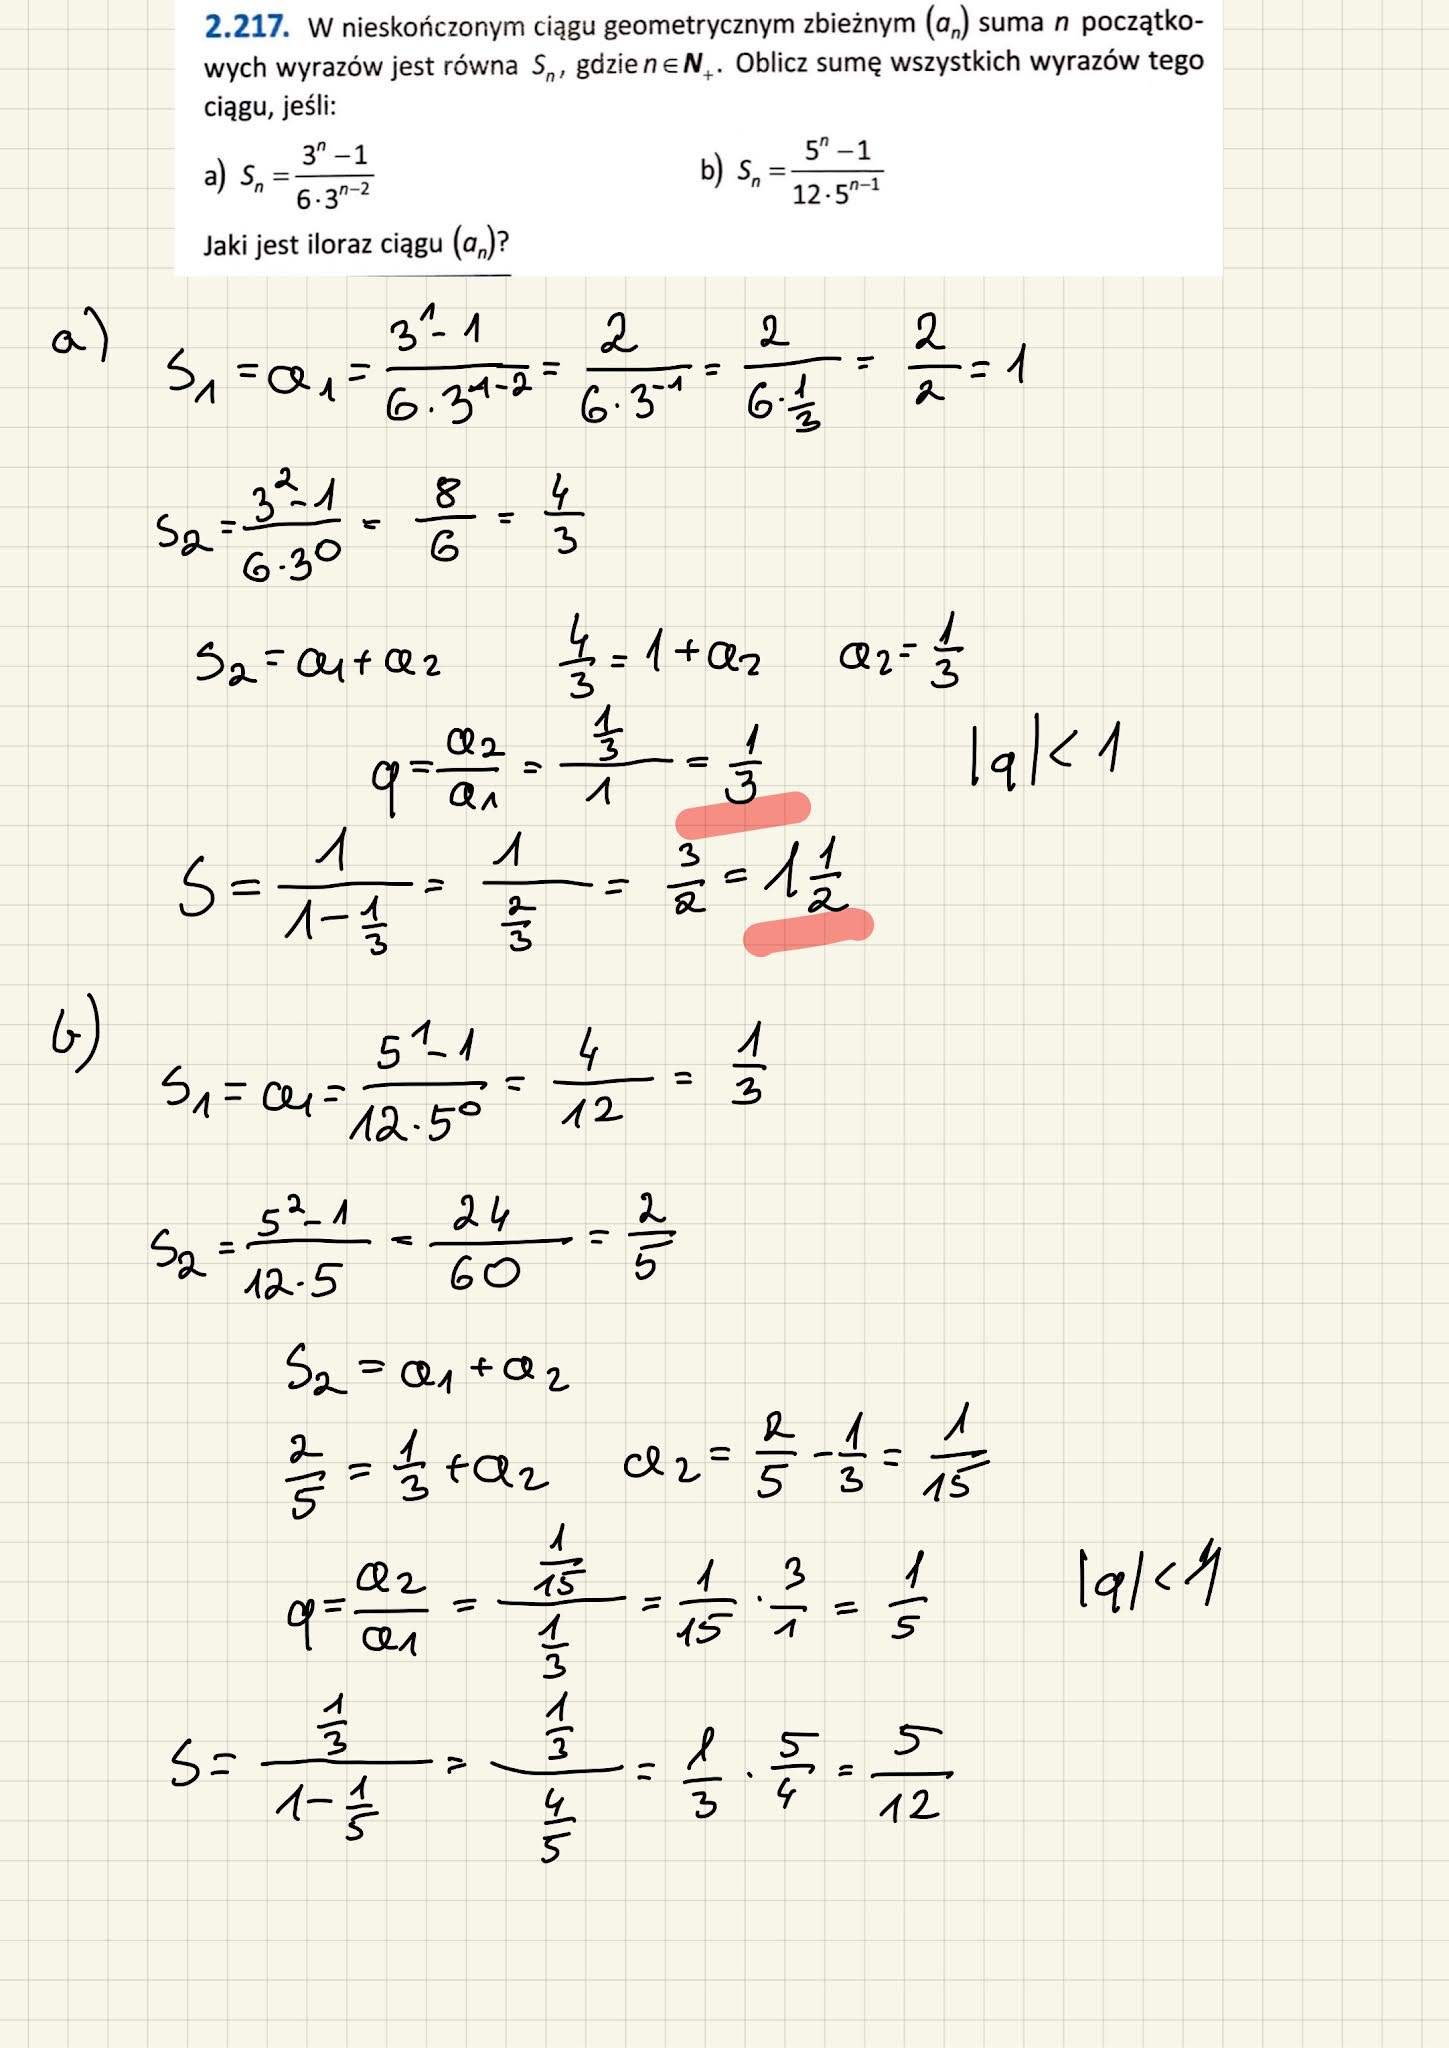 2.217. W nieskończonym ciągu geometrycznym zbieżnym (aₙ) suma n początko-
wych wyrazów jest równa Sₙ, gdzie n ∈ N₊. Oblicz sumę wszystkich wyrazów tego
ciągu, jeśli:
a) Sₙ = (3ⁿ − 1)/(6·3ⁿ⁻²) b) Sₙ = (5ⁿ − 1)/(12·5ⁿ⁻¹)
Jaki jest iloraz ciągu (aₙ)?
a) S₁ = a₁ = (3¹ − 1)/(6·3¹⁻²) = 2/(6·3⁻¹) = 2/(6·1/3) = 2/2 = 1
S₂ = (3² − 1)/(6·3⁰) = 8/6 = 4/3
S₂ = a₁ + a₂ 4/3 = 1 + a₂ a₂ = 1/3
q = a₂/a₁ = (1/3)/1 = 1/3 |q| < 1
S = 1/(1 − 1/3) = 1/(2/3) = 3/2 = 1 1/2
b) S₁ = a₁ = (5¹ − 1)/(12·5⁰) = 4/12 = 1/3
S₂ = (5² − 1)/(12·5) = 24/60 = 2/5
S₂ = a₁ + a₂
2/5 = 1/3 + a₂ a₂ = 2/5 − 1/3 = 1/15
q = a₂/a₁ = (1/15)/(1/3) = 1/15 · 3/1 = 1/5 |q| < 1
S = (1/3)/(1 − 1/5) = (1/3)/(4/5) = 1/3 · 5/4 = 5/12